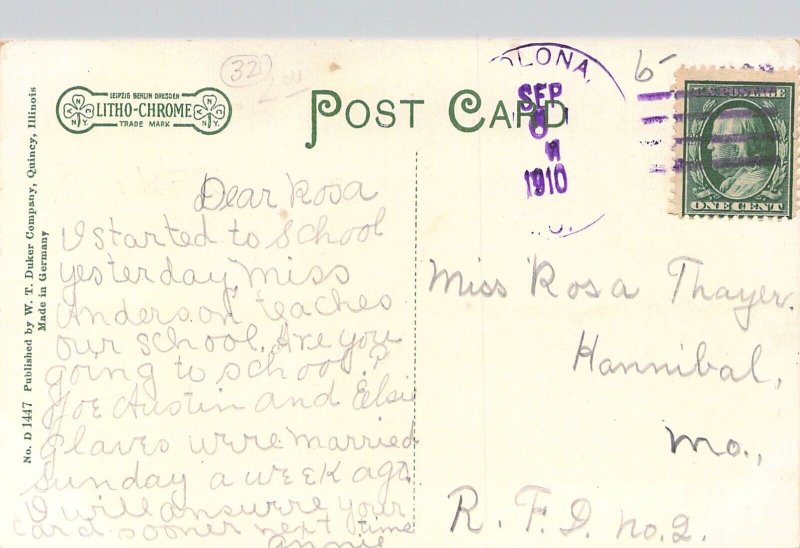 32
LEIPZIG BERLIN DRESDEN
LITHO-CHROME
TRADE MARK
N.Y.
N.Y.
POST CARD
OLONA,
SEP
1910
6
U.S. POSTAGE
ONE CENT
No. D 1447 Published by W. T. Duker Company, Quincy, Illinois
Made in Germany
Dear Rosa
I started to School
yesterday, Miss
Anderson teaches
our school. Are you
going to school?
Joe Austin and Elsie
Glaves were married
Sunday a week ago.
I will answere your
card sooner next time
annie
Miss Rosa Thayer.
Hannibal,
Mo.,
R. F. D. no. 2.